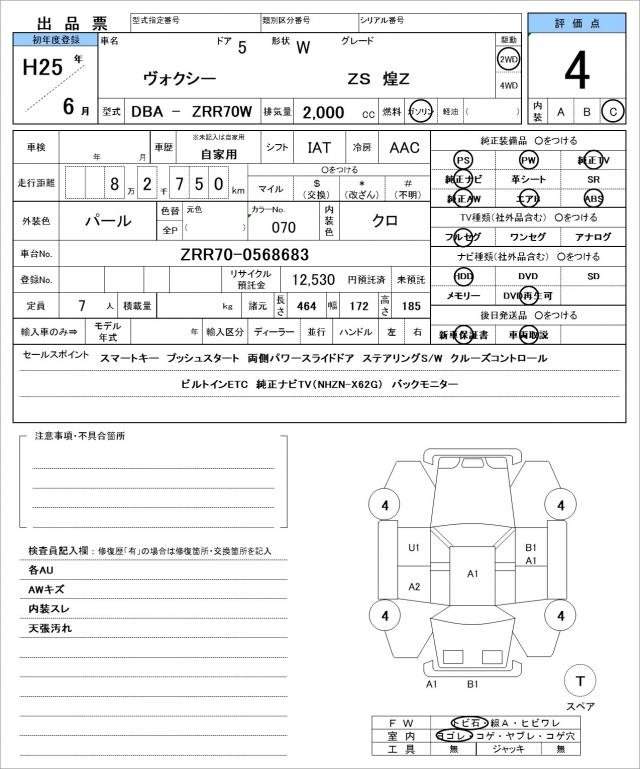 出 品 票 型式指定番号 類別区分番号 シリアル番号
評 価 点
初年度登録 車名 ドア 5 形状 W グレード 駆動
H25 年 ヴォクシー ZS 煌Z 2WD 4
4WD
6 月 型式 DBA - ZRR70W 排気量 2,000 cc 燃料 ガソリン 軽油 ( ) 内装 A B C
車検 年 月 車歴 ※未記入は自家用 自家用 シフト IAT 冷房 AAC
純正装備品 〇をつける
PS PW 純正TV
走行距離 8 万 2 千 7 5 0 km 〇をつける
マイル $ (交換) * (改ざん) # (不明)
純正ナビ 革シート SR
純正AW エアB ABS
外装色 パール 色替 元色 全P ( ) カラーNo. 070 内装色 クロ
TV種類(社外品含む) 〇をつける
フルセグ ワンセグ アナログ
車台No. ZRR70-0568683
ナビ種類(社外品含む) 〇をつける
登録No. リサイクル預託金 12,530 円預託済 未預託
HDD DVD SD
メモリー DVD再生可
定員 7 人 積載量 kg 諸元 長さ 464 幅 172 高さ 185
後日発送品 〇をつける
輸入車のみ⇒ モデル年式 年 輸入区分 ディーラー 並行 ハンドル 左 右
新車保証書 車両取説
セールスポイント スマートキー プッシュスタート 両側パワースライドドア ステアリングS/W クルーズコントロール
ビルトインETC 純正ナビTV(NHZN-X62G) バックモニター
注意事項・不具合箇所
検査員記入欄:修復歴「有」の場合は修復箇所・交換箇所を記入
各AU
AWキズ
内装スレ
天張汚れ
4 4
U1 B1
A1
A2 A1
4 4
A1 B1
T
スペア
F W トビ石・線A・ヒビワレ
室 内 ヨゴレ・コゲ・ヤブレ・コゲ穴
工 具 無 ジャッキ 無